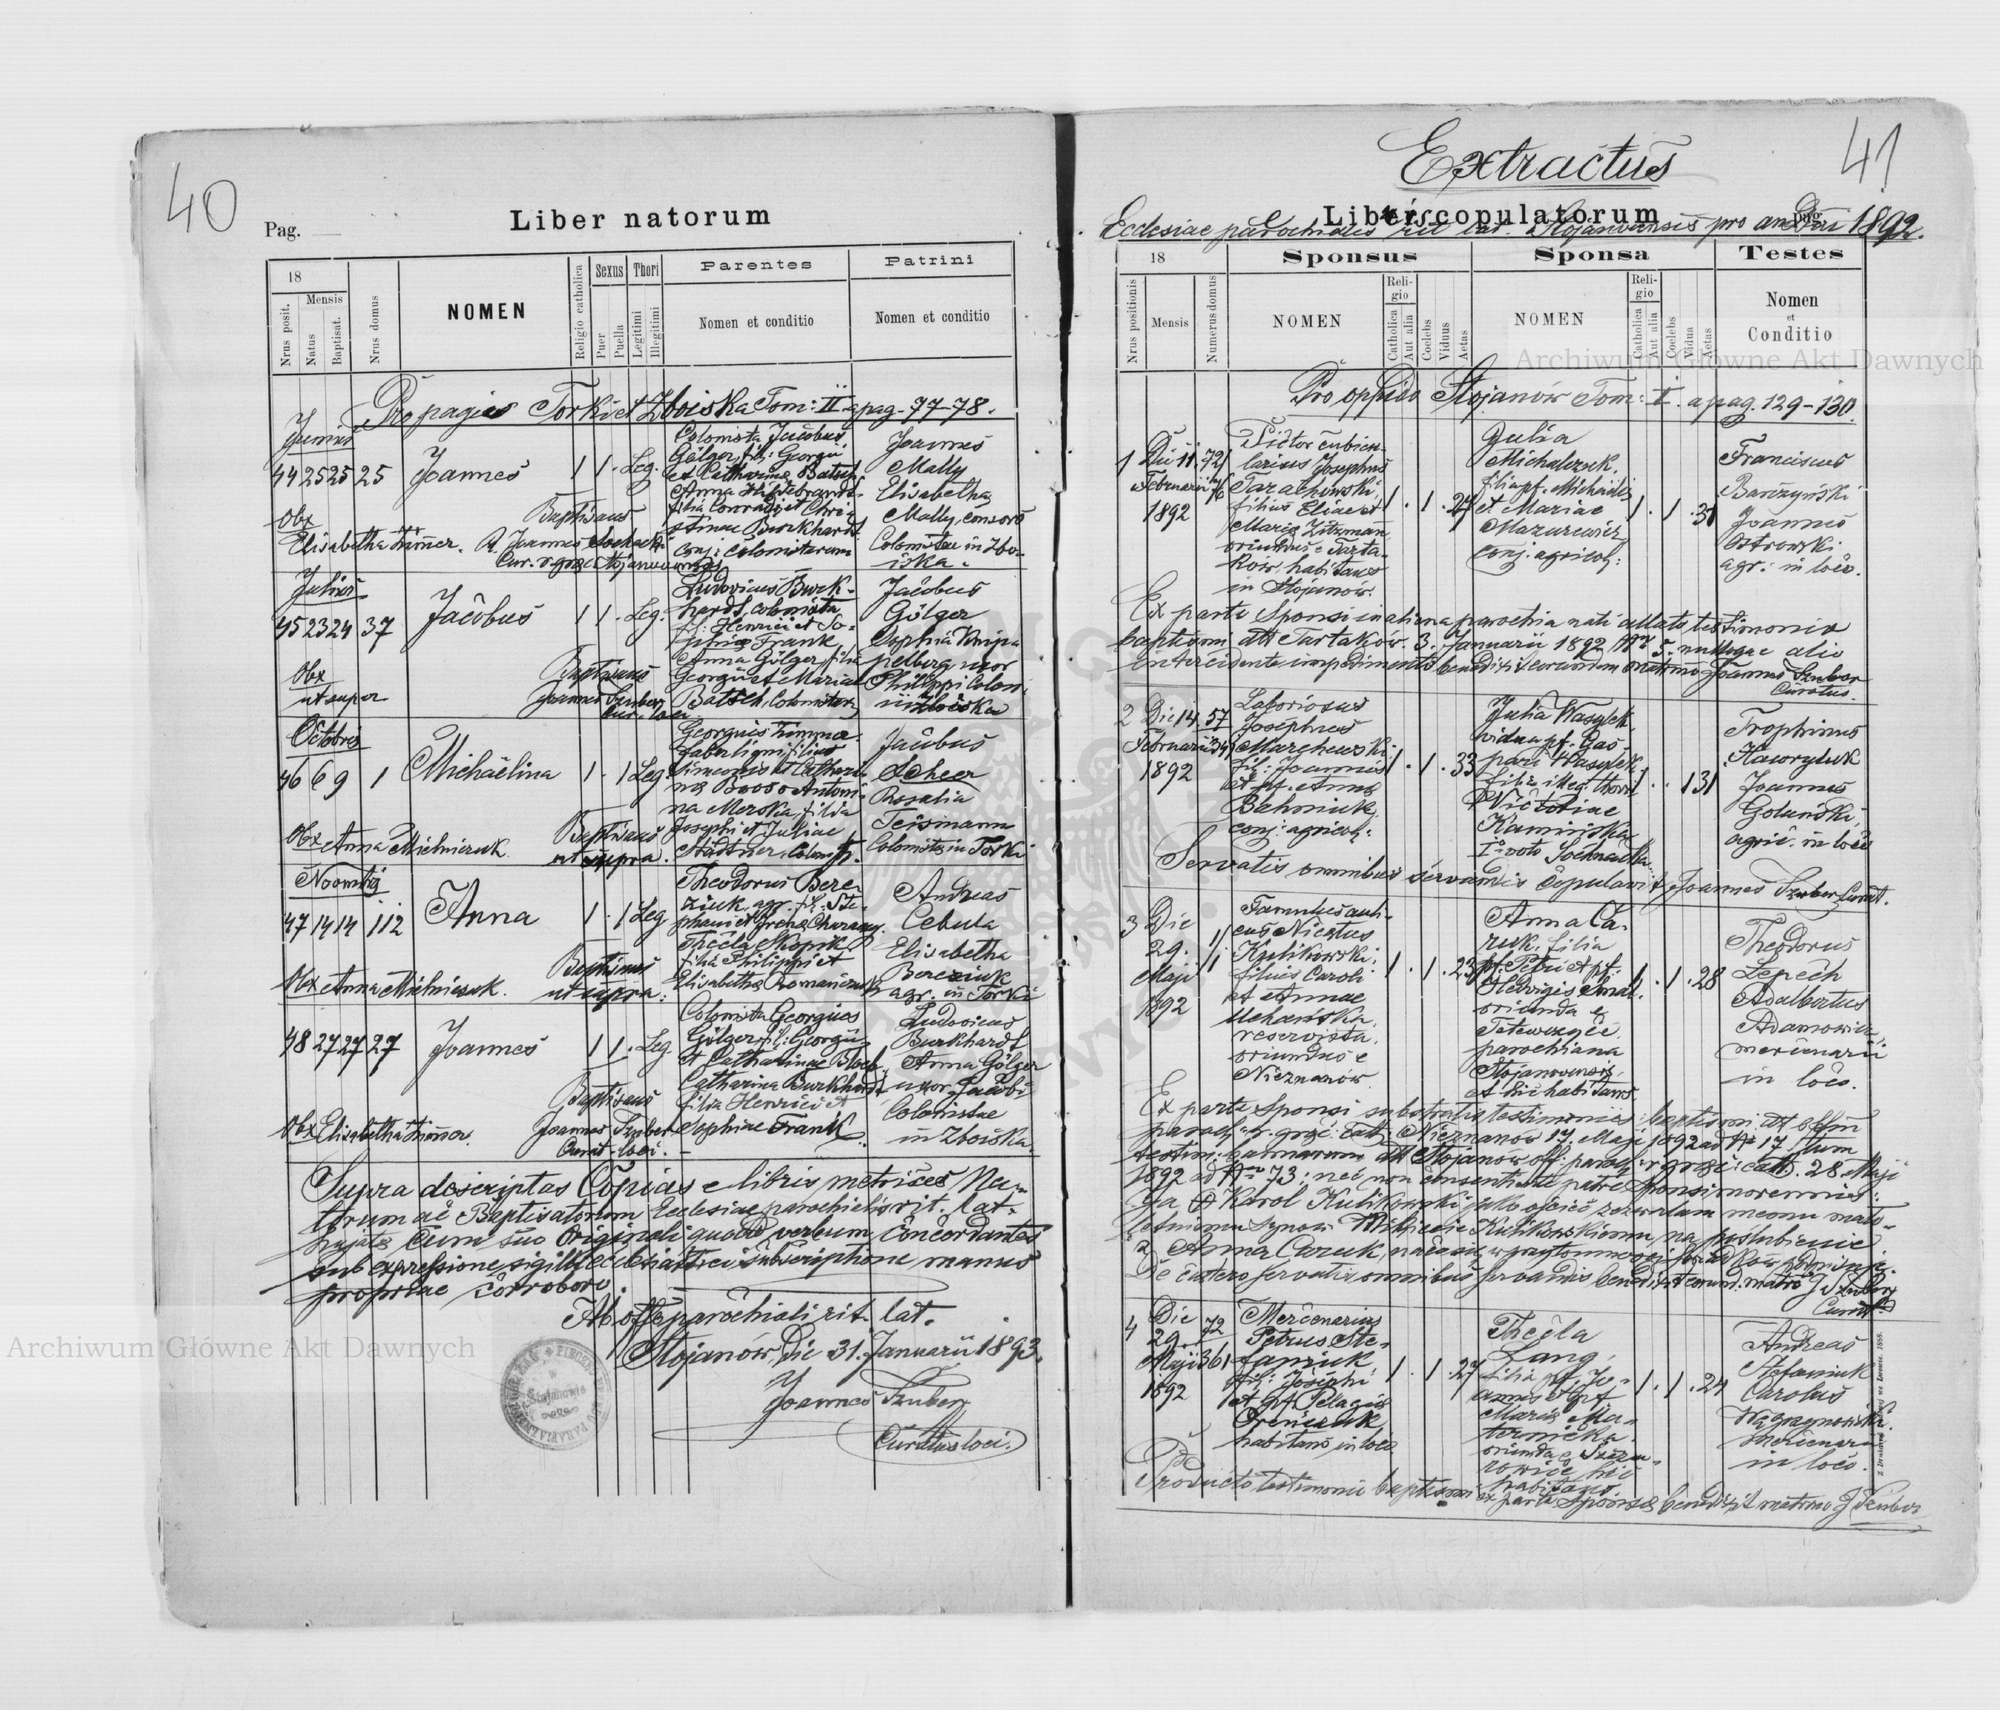 40
Pag.
Liber natorum
18
Mensis
Nrus posit.
Natus
Baptisat.
Nrus domus
NOMEN
Religio catholica
Sexus
Puer
Puella
Thori
Legitimi
Illegitimi
Parentes
Nomen et conditio
Patrini
Nomen et conditio
Pro pagis Torki et Zboiska Tom: II. a pag. 77-78.
Junius
44 25 25 25 Joannes 1 1 Leg.
Colonista Jacobus
Gölger, fil: Georgii
et Catharinae Batsch
Anna Hildebrandt
filia Conradi et Chri-
stinae Burkhardt
conj: colonistarum
Joannes
Mally
Elisabetha
Mally, consors
Colonistae in Zbo-
iska.
Obx
Elisabetha Zimmer.
Baptisans
R. Joannes Sochacki
Cur. r. graec. Stojanoviensis
Julius
45 23 24 37 Jacobus 1 1 Leg.
Ludovicus Burk-
hardt, colonista,
fil: Henrici et So-
phiae Frank
Anna Gölger, filia
Georgii et Mariae
Batsch, Colonistarum
Jacobus
Gölger
Sophia
uxor
Philippi Colon:
in Zboiska
Obx
ut super
Baptisans
Joannes Szuber
Cur. loci
Octobris
46 6 9 1 Michaëlina 1 1 Leg
Georgius Zimmer
faber lign. filius
Simeonis et Cathari-
nae Antoni-
na filia
Josephi et Juliae
Städtner, Colonist.
Jacobus
Scheer
Rosalia
Teismann
Colonistae in Torki
Obx Anna Mielniczuk.
Baptisans
ut supra.
Novembris
47 14 14 112 Anna 1 1 Leg
Theodorus Bere-
ziuk, agr. fil: Ste-
phani et Irenae
Thecla Skopik
filia Philippi et
Elisabethae Romańczuk
Andreas
Cebula
Elisabetha
Bereziuk
agr. in Torki
Obx Anna Mielniczuk.
Baptisans
ut supra.
48 27 27 27 Joannes 1 1 Leg
Colonista Georgius
Gölger fil: Georgii
et Catharinae Bloch
Catharina Burkhardt
filia Henrici et
Sophiae Frank
Ludovicus
Burkhardt
Anna Gölger
uxor Jacobi
Colonistae
in Zboiska.
Obx Elisabetha Zimmer.
Baptisans
Joannes Szuber
Curat. loci.
Supra descriptas Copias e libris metrices Na-
torum ac Baptisatorum Ecclesiae parochialis rit. lat.
hujatis cum suo Originali quoad verbum Concordantes
sub expressione sigilli ecclesiastici subscriptione manus
propriae corroboro.
Ab off. parochiali rit. lat.
Stojanów, Die 31. Januarii 1893.
Joannes Szuber
Curatus loci.
41
Extractus
Liber copulatorum
pag.
Ecclesiae parochialis rit. lat. Stojanoviensis pro anno 1892.
18
Nrus positionis
Mensis
Numerus domus
Sponsus
NOMEN
Religio
Catholica
Aut alia
Coelebs
Viduus
Aetas
Sponsa
NOMEN
Religio
Catholica
Aut alia
Coelebs
Vidua
Aetas
Testes
Nomen
et
Conditio
Pro oppido Stojanów Tom: I. a pag. 129-130.
1 Die 11. Februarii 1892 72/76
Pictor cubicu-
larius Josephus
Tarachowski,
filius Eliae et
Mariae Zitzman
oriundus e Tarta-
ków, habitans
in Stojanów.
1 . 1 . 27
Julia
Michalczuk,
filia pf. Michaelis
et Mariae
Mazurewicz
conj. agricol:
1 . 1 . 31
Franciscus
Barczyński
Joannes
Ostrowski
agr: in loco.
Ex parte Sponsi in aliena parochia nati allato testimonio
baptismi dtt Tartaków 3. Januarii 1892 Nr 5. nulloque alio
intercedente impedimento benedixit eorundem matrimo Joannes Szuber
Curatus.
2 Die 14 Februarii 1892 57/341
Laboriosus
Josephus
Marchewski
fil: Joannis
et pf. Annae
Bahniuk,
conj: agricol:
1 . 1 . 33
Julia Wasylek,
vidua pf. Gas-
pari Wasylek,
filia illeg. thori
Victoriae
Kamińska
I° voto Sochacka
1 . . 1 31
Trophimus
Haworyluk
Joannes
Golański,
agric. in loco
Servatis omnibus servandis copulavit Joannes Szuber Curat.
3 Die 29. Maji 1892
Famulus auli-
cus Nicetus
Kulikowski,
filius Caroli
et Annae
Uchańska,
reservista,
oriundus e
Nieznanów.
1 . 1 . 23
Anna Ca-
ruk, filia
pf. Petri et pf.
Hedvigis
oriunda e
Tetewczyce,
parochiana
Stojanovensis,
et hic habitans
1 . 1 . 28
Theodorus
Lepech
Adalbertus
Adamowicz,
mercenarii
in loco.
Ex parte Sponsi substratis testimoniis: baptismi dtt offm
paroch: r. graec. cath. Nieznanów 17. Maji 1892 ad Nr 17, tum
testim: bannorum dtt Stojanów off. paroch: r. graec: cath. 28. Maji
1892 ad Nr 73; nec non consentiente patre Sponsi minorennis:
Ja Karol Kulikowski jako ojciec zezwalam memu mało-
letniemu synowi Mikicie Kulikowskiemu na poślubienie
z Anną Caruk, na co się w przytomności świadków podpisuję.
De caetero servatis omnibus servandis benedixit eorund: matrim J Szuber
Curat.
4 Die 29. Maji 1892 72/361
Mercenarius
Petrus Ste-
faniuk,
fil: Josephi
et pf. Pelagiae
habitans in loco
1 . 1 . 27
Thecla
Lang,
filia pf. Jo-
annis et pf.
Mariae Ma-
ternicka,
oriunda e
hic
habitans
1 . 1 . 24
Andreas
Stefaniuk
Carolus
mercenarii
in loco.
Producto testimonio baptismi ex parte Sponsae benedixit matrimo J Szuber
Archiwum Główne Akt Dawnych
Archiwum Główne Akt Dawnych